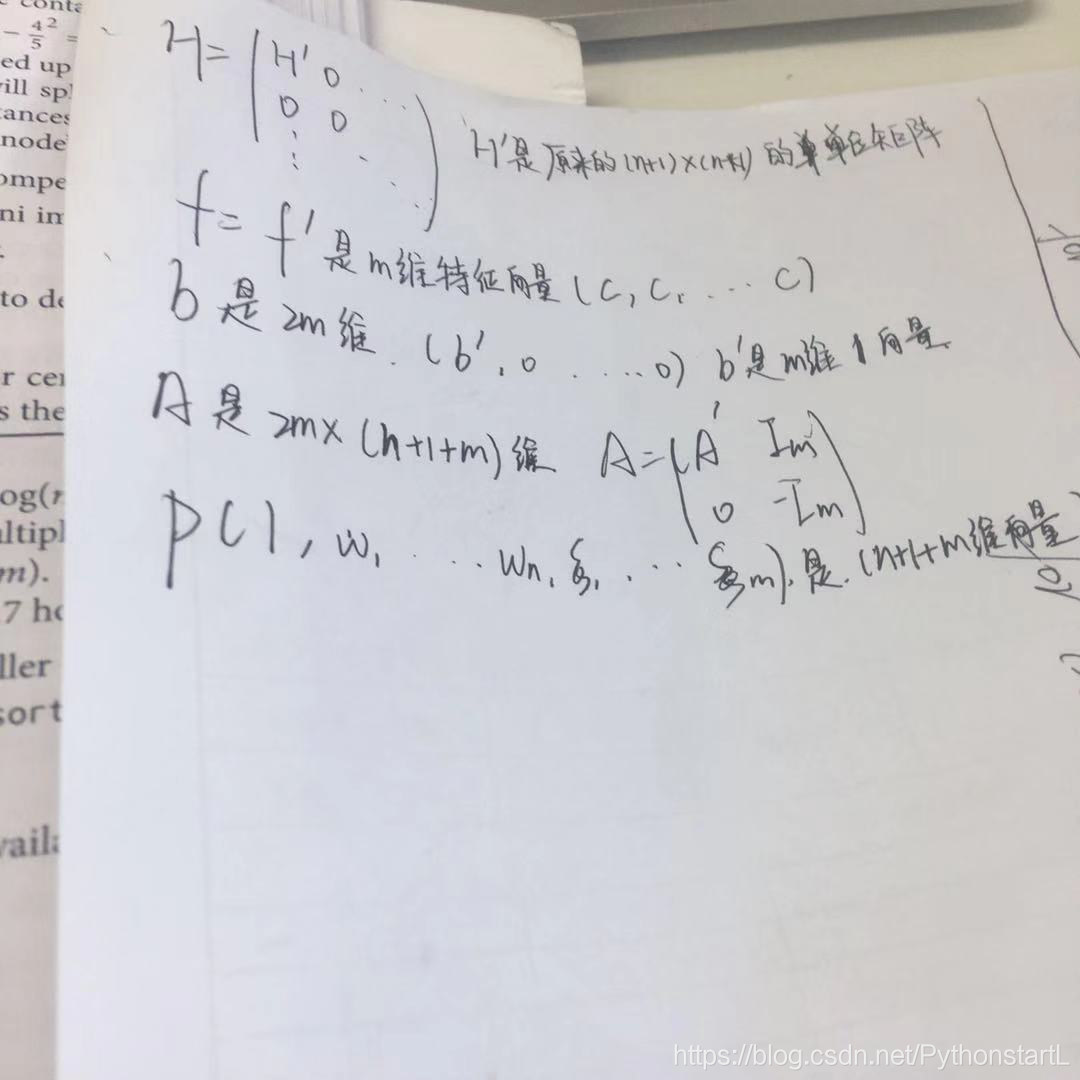 conta
- 4/5 ² =
ed up
ill sp
tances
node
ompe
ni im
to de
r cer
s the
og(n
ltipl
m).
7 ho
ller
sort
vaila
H = ( H' 0 ...
0 0
⋮ ⋱ )
H'是原来的(n+1)×(n+1)的单位矩阵
f = f'是m维特征向量(C, C, ... C)
b是2m维. (b', 0 ..... 0) b'是m维1向量.
A是2m×(n+1+m)维 A=(A' Im
0 -Im)
p(1, w₁ ... wn, ξ₁, ... ξm).是.(n+1+m维向量)
https://blog.csdn.net/PythonstartL